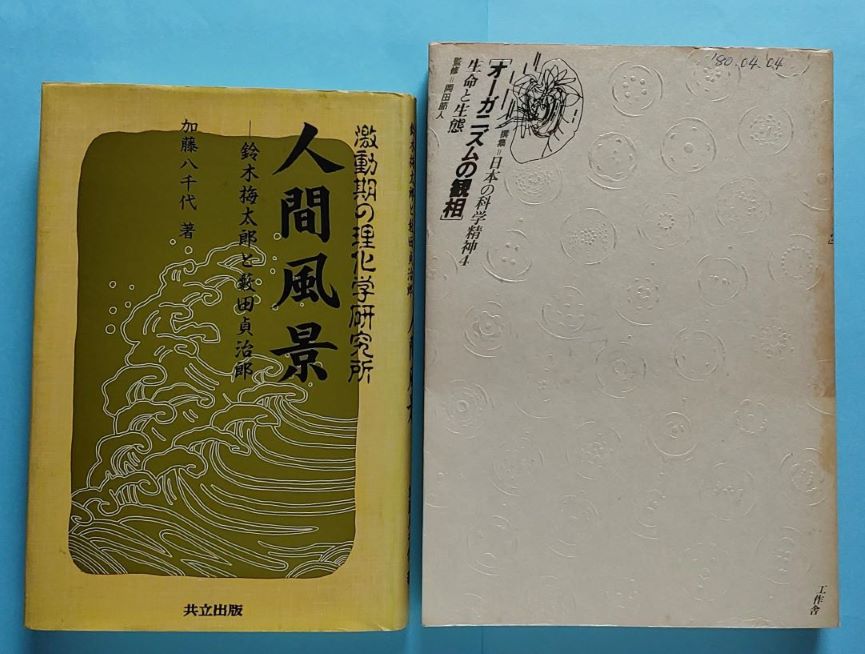 激動期の理化学研究所
人間風景
―鈴木梅太郎と藪田貞治郎
加藤八千代 著
共立出版
鈴木梅太郎と藪田貞治郎
'80.04.04
[オーガニズムの観相]
撰集=日本の科学精神4
生命と生態
監修=岡田節人
工作舎